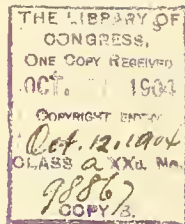 THE LIBRARY OF
CONGRESS,
ONE COPY RECEIVED
OCT. 190
COPYRIGHT ENTRY
Oct. 12, 1904
CLASS a XXc. No.
98867
COPY B.